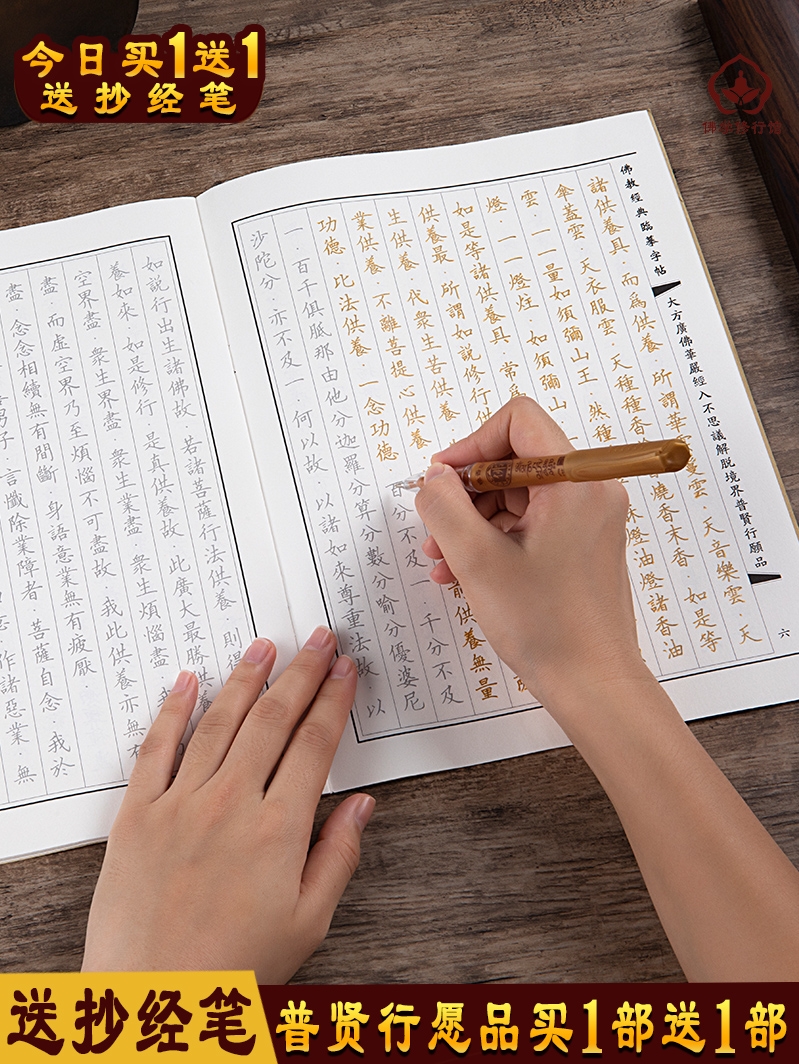 今日买1送1
送抄经笔
佛教經典臨摹字帖
大方廣佛華嚴經入不思議解脫境界普賢行願品
六
諸供養具·而為供養·所謂華雲鬘雲·天音樂雲·天
傘蓋雲·天衣服雲·天種種香 燒香末香·如是等
雲·一一量如須彌山王·然種 油燈諸香油
燈·一一燈炷·如須彌山
如是等諸供養具·常為
供養最·所謂如說修行供
生供養·代眾生苦供養
業供養·不離菩提心供養 前供養無量
功德·比法供養·一念功德 百分不及一·千分不及
一·百千俱胝那由他分迦羅分算分數分喻分優婆尼
沙陀分·亦不及一·何以故·以諸如來尊重法故·以
如說行出生諸佛故·若諸菩薩行法供養·則得
養如來·如是修行·是真供養故·此廣大最勝供養
空界盡·眾生界盡·眾生業盡·眾生煩惱盡·我
盡·而虛空界乃至煩惱不可盡故·我此供養亦無有
盡·念念相續無有間斷·身語意業無有疲厭·
男子·言懺除業障者·菩薩自念·我於
作諸惡業·無
送抄经笔
普贤行愿品买1部送1部